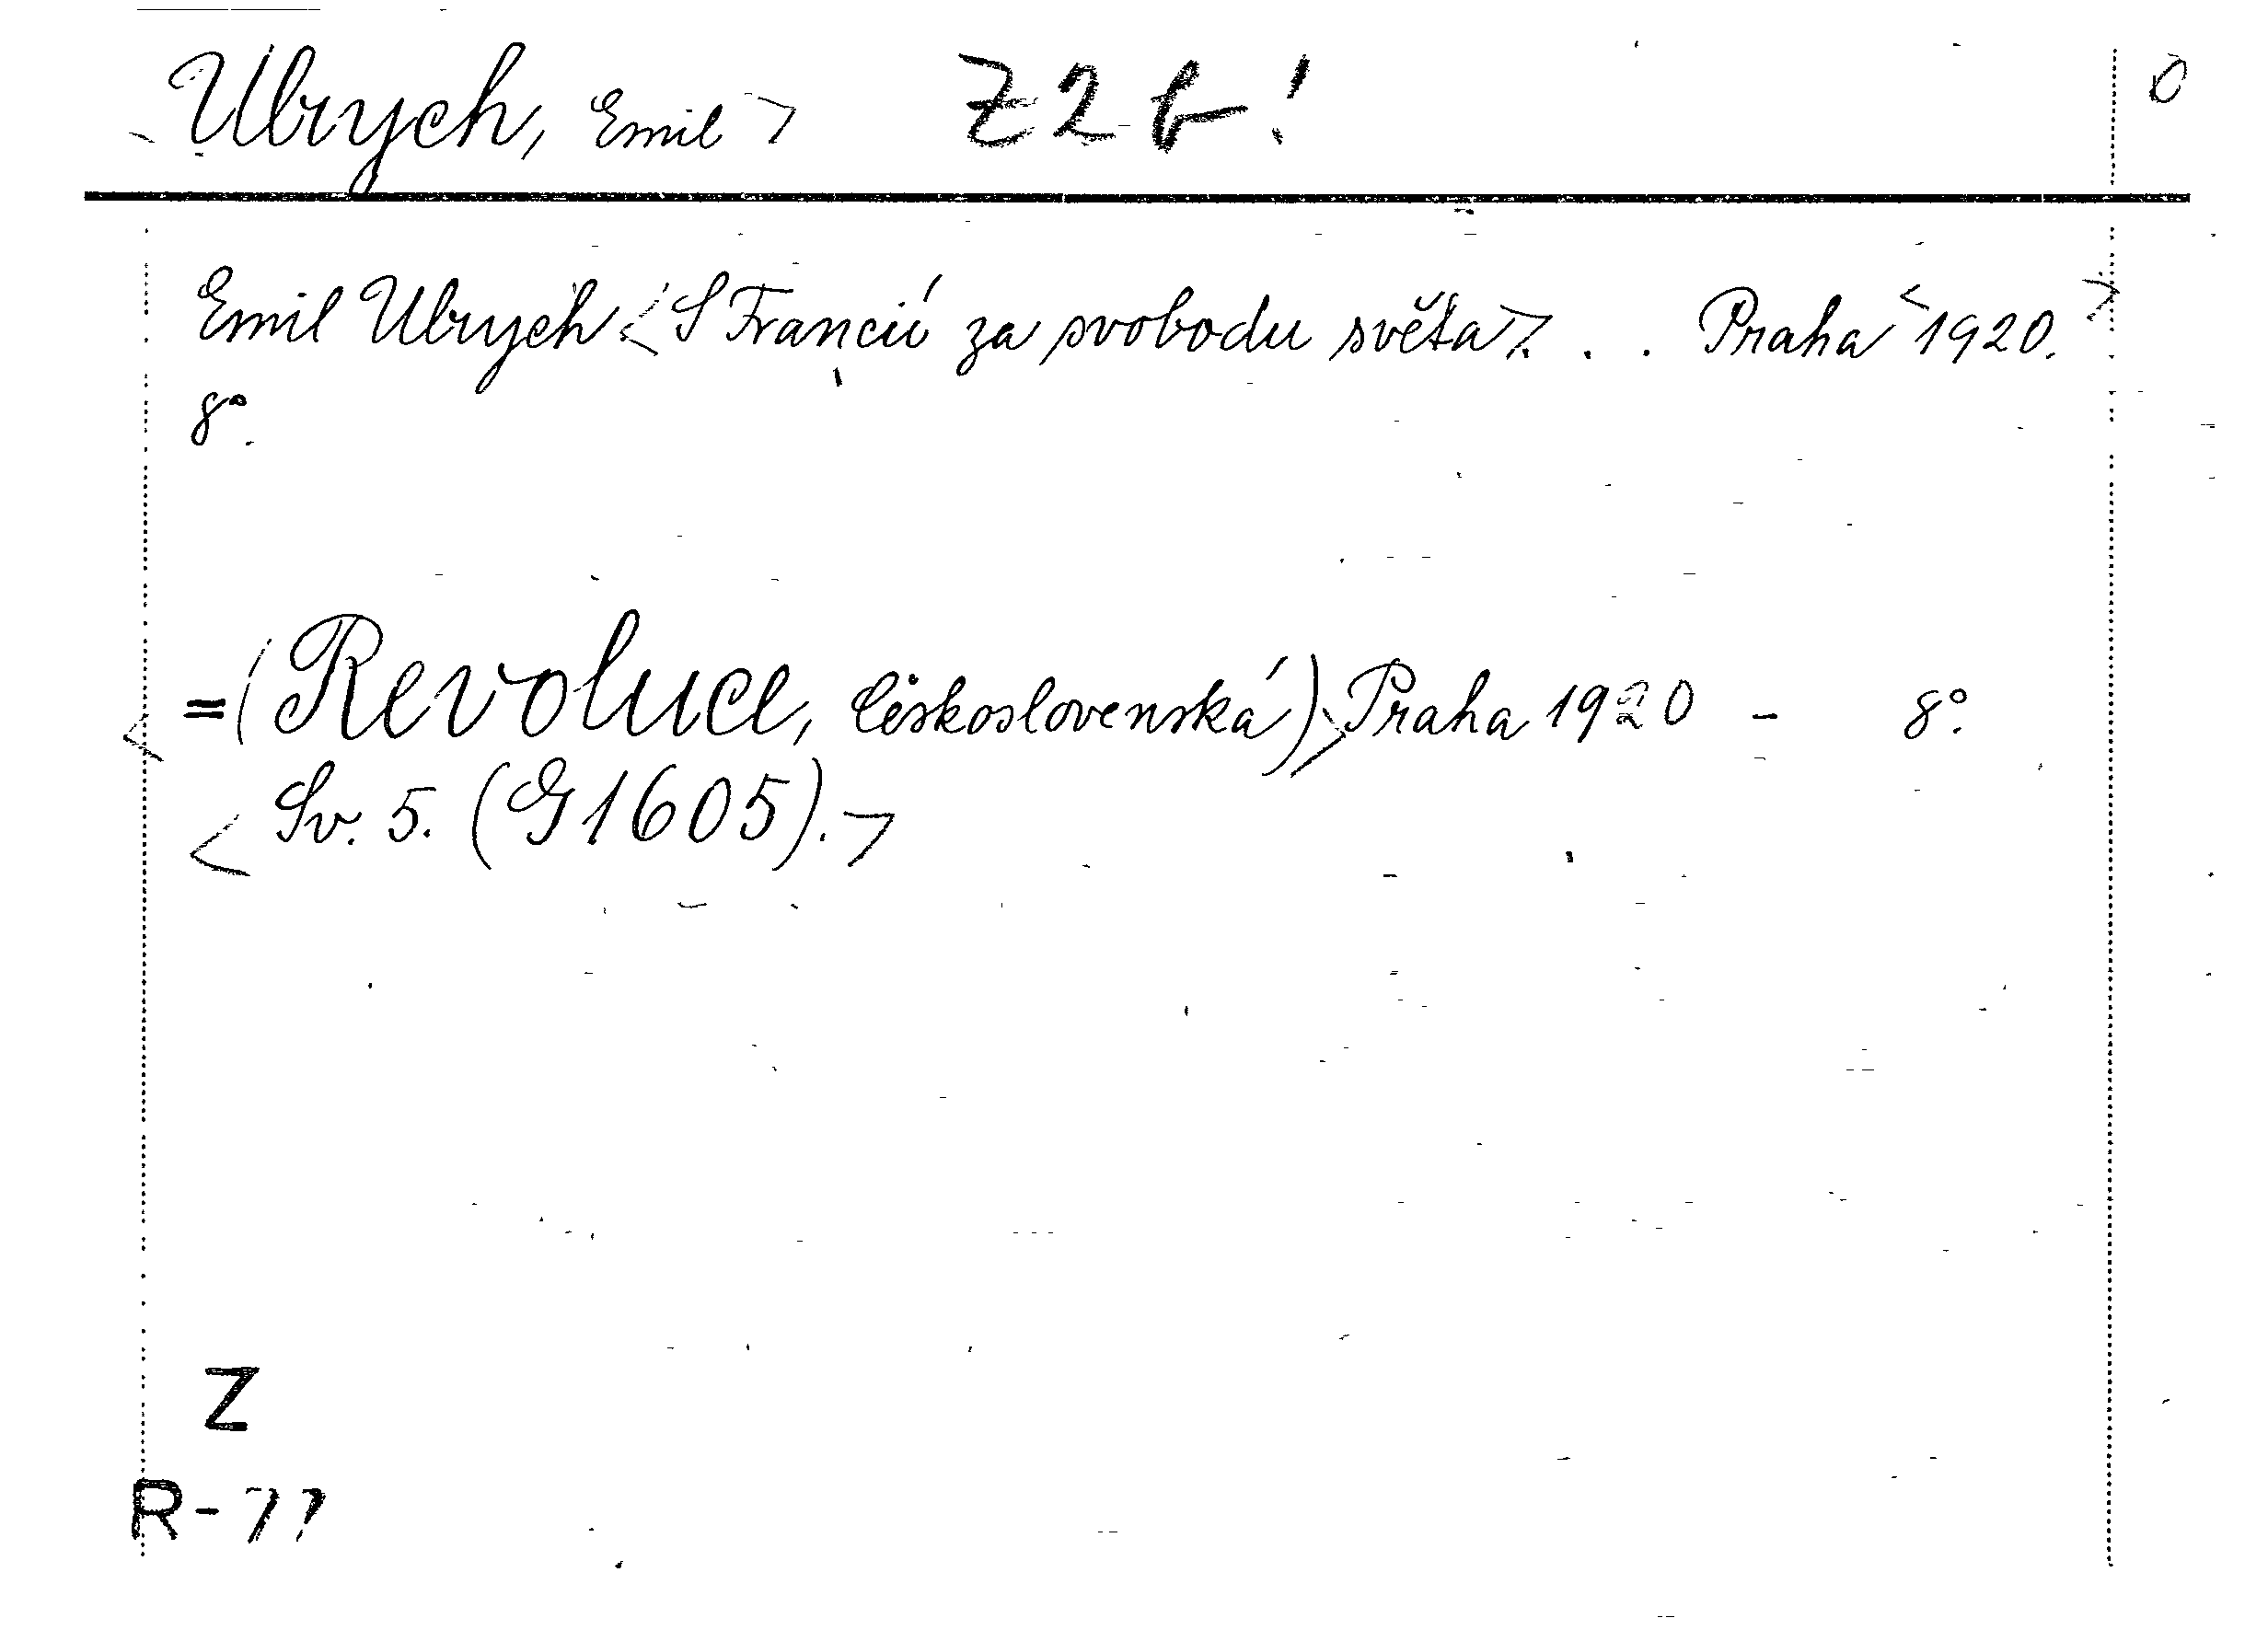 Ubrych, Emil> Z 2 b!
0
Emil Ubrych <S Francií za svobodu světa>. . . Praha <1920.>
8°.
<=(Revoluce, československá)> Praha 1920 - 8°.
<Sv. 5. (G 1605).>
Z
R-77